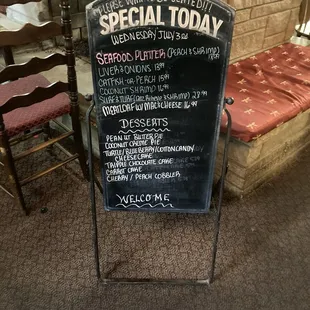 PLEASE WAIT TO BE SEATED!!
SPECIAL TODAY
WEDNESDAY JULY 3
SEAFOOD PLATTER (PEACH & SHRIMP)
LIVER & ONIONS 13.99
CATFISH OR PEACH 15.99
COCONUT SHRIMP 16.99
SURF & TURF & SHRIMP) 27.99
MEATLOAF W/ MAC & CHEESE 16.99
DESSERTS
PEANUT BUTTER PIE
COCONUT CREME PIE
TURTLE/BLUEBERRY/COTTONCANDY
CHEESECAKE
TRIPPLE CHOCOLATE CAKE
CARROT CAKE
CHERRY / PEACH COBBLER
WELCOME